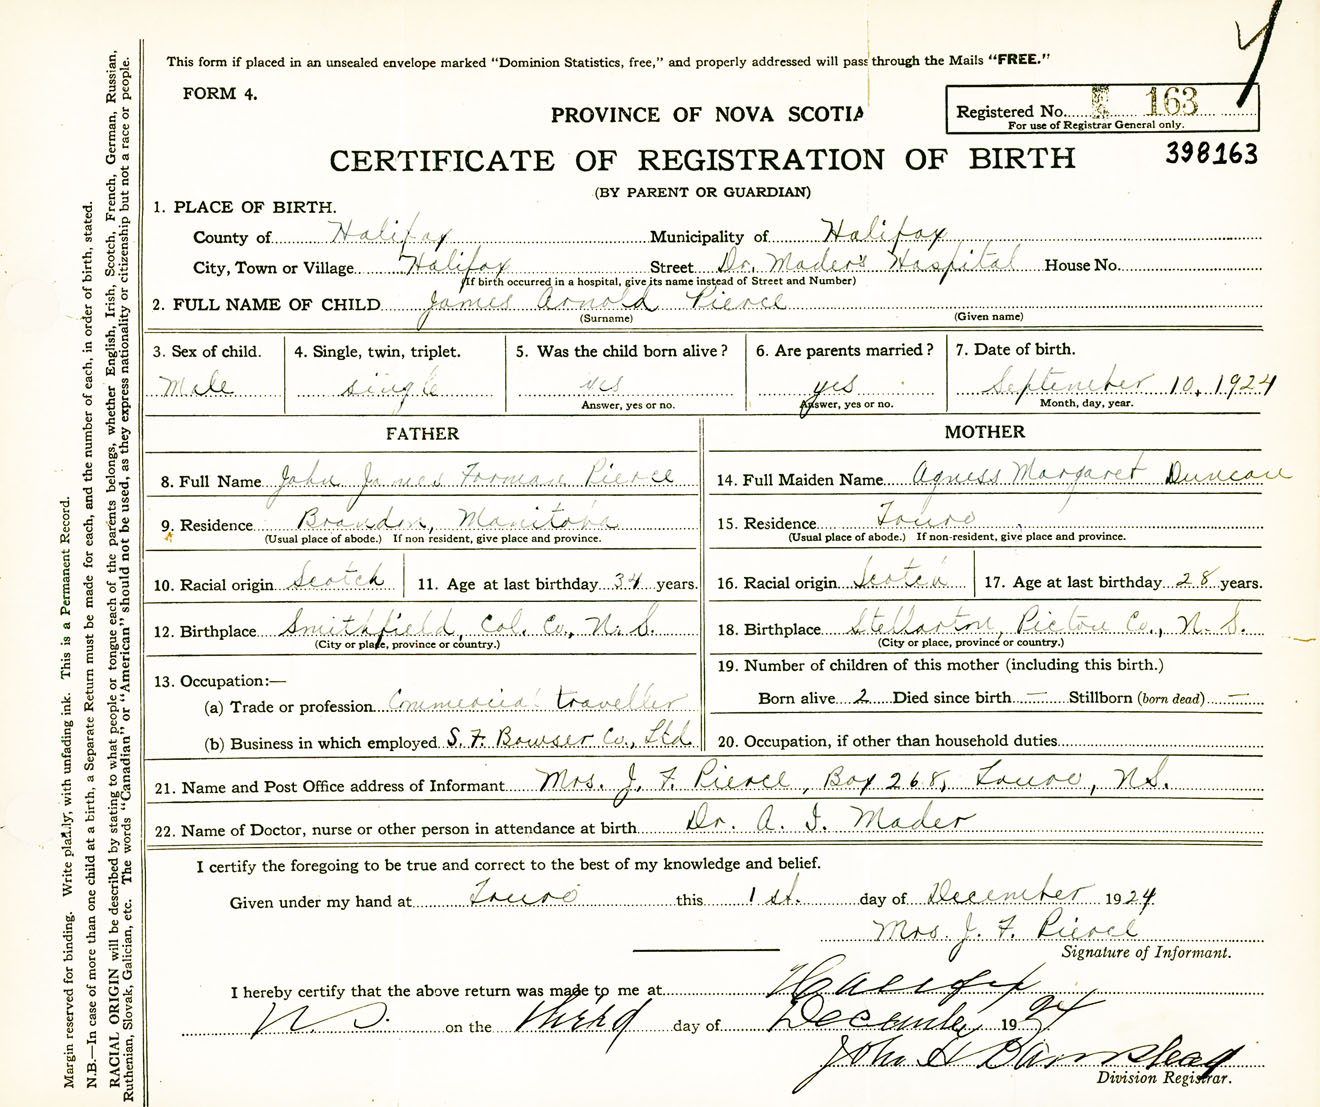 This form if placed in an unsealed envelope marked "Dominion Statistics, free," and properly addressed will pass through the Mails "FREE."
FORM 4.
PROVINCE OF NOVA SCOTIA
Registered No. 163
For use of Registrar General only.
CERTIFICATE OF REGISTRATION OF BIRTH
398163
(BY PARENT OR GUARDIAN)
1. PLACE OF BIRTH.
County of Halifax Municipality of Halifax
City, Town or Village Halifax Street Dr. Mader's Hospital House No.
(If birth occurred in a hospital, give its name instead of Street and Number)
2. FULL NAME OF CHILD James Arnold Pierce
(Surname) (Given name)
3. Sex of child. 4. Single, twin, triplet. 5. Was the child born alive? 6. Are parents married? 7. Date of birth.
Male single yes yes September 10, 1924
Answer, yes or no. Answer, yes or no. Month, day, year.
FATHER MOTHER
8. Full Name John James Forman Pierce 14. Full Maiden Name Agness Margaret Duncan
9. Residence Brandon, Manitoba 15. Residence Truro
(Usual place of abode.) If non resident, give place and province. (Usual place of abode.) If non-resident, give place and province.
10. Racial origin Scotch 11. Age at last birthday 34 years. 16. Racial origin Scotch 17. Age at last birthday 28 years.
12. Birthplace Smithfield, Col. Co., N. S. 18. Birthplace Stellarton, Pictou Co., N. S.
(City or place, province or country.) (City or place, province or country.)
13. Occupation:— 19. Number of children of this mother (including this birth.)
(a) Trade or profession Commercial traveller Born alive 2 Died since birth — Stillborn (born dead) —
(b) Business in which employed S. F. Bowser Co., Ltd. 20. Occupation, if other than household duties
21. Name and Post Office address of Informant Mrs. J. F. Pierce, Box 268, Truro, N.S.
22. Name of Doctor, nurse or other person in attendance at birth Dr. A. I. Mader
I certify the foregoing to be true and correct to the best of my knowledge and belief.
Given under my hand at Truro this 1st. day of December 1924
Mrs. J. F. Pierce
Signature of Informant.
I hereby certify that the above return was made to me at Halifax
N S. on the third day of December 1924
John H Barnstead
Division Registrar.
Margin reserved for binding. Write plainly, with unfading ink. This is a Permanent Record.
N.B.—In case of more than one child at a birth, a Separate Return must be made for each, and the number of each, in order of birth, stated.
RACIAL ORIGIN will be described by stating to what people or tongue each of the parents belongs, whether English, Irish, Scotch, French, German, Russian,
Ruthenian, Slovak, Galician, etc. The words "Canadian" or "American" should not be used, as they express nationality or citizenship but not a race or people.